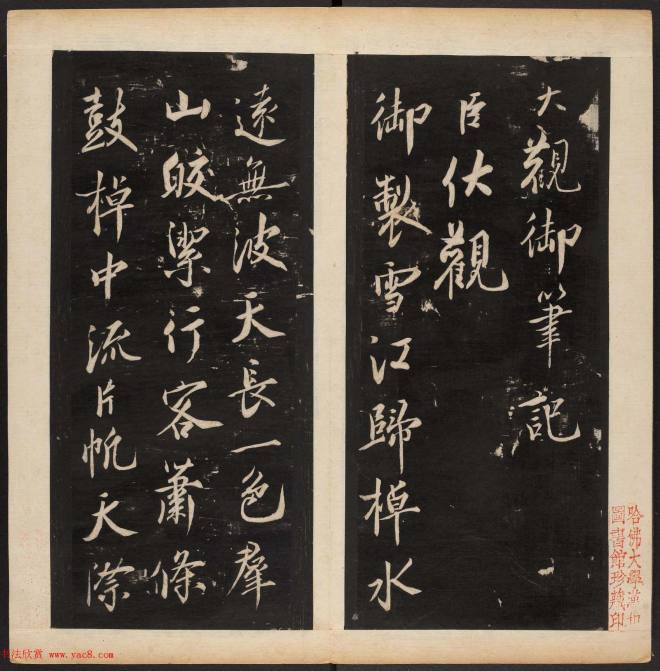 大觀御筆記
臣伏觀
御製雪江歸棹水
遠無波天長一色羣
山皎潔行客蕭條
鼓棹中流片帆天際
哈佛大學漢和
圖書館珍藏印
书法欣赏 www.yac8.com